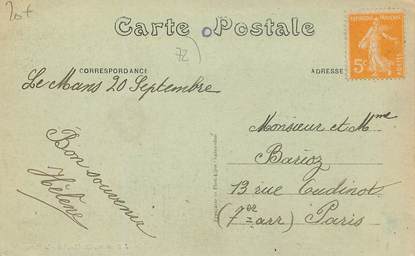 20f
Carte Postale
72)
RÉPUBLIQUE FRANÇAISE
5c
POSTES
CORRESPONDANCE
ADRESSE
Le Mans 20 Septembre
Bon souvenir
Hélène
Monsieur et Mme
Barioz
13 rue Oudinot
(7er arr) Paris